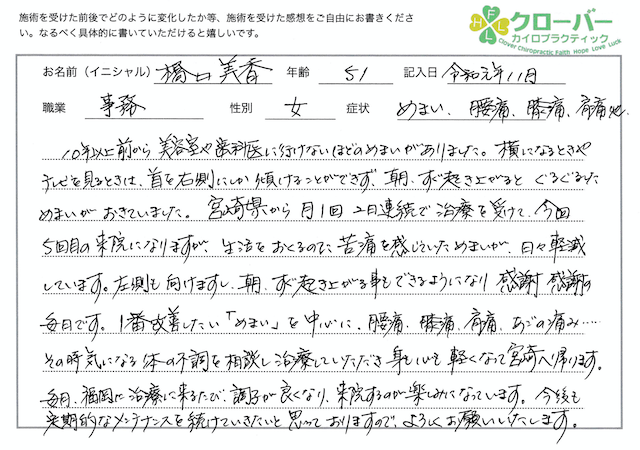 施術を受けた前後でどのように変化したか等、施術を受けた感想をご自由にお書きくださ
い。なるべく具体的に書いていただけると嬉しいです。
HFLL
クローバー
カイロプラクティック
Clover Chiropractic Faith Hope Love Luck
お名前（イニシャル） 橋口 美香 年齢 51 記入日 令和元年11月
職業 事務 性別 女 症状 めまい、腰痛、膝痛、肩痛 etc.
10年以上前から美容室や歯科医に行けないほどのめまいがありました。横になるときや
テレビを見るときは、首を右側にしか傾けることができず、朝、すぐ起き上がると ぐるぐるした
めまいがおきていました。宮崎県から月1回 2日連続で治療を受けて、今回
5回目の来院になりますが、生活をおくるのに苦痛を感じていためまいが、日々軽減
しています。左側も向けますし、朝、すぐ起き上がる事もできるようになり 感謝 感謝の
毎日です。1番改善したい「めまい」を中心に、腰痛、膝痛、肩痛、あごの痛み……
その時気になる体の不調を相談し治療していただき 身も心も軽くなって宮崎へ帰ります。
毎月、福岡に治療に来るたび、調子が良くなり、来院するのが楽しみになっています。今後も
定期的なメンテナンスを続けていきたいと思っておりますので、よろしくお願いいたします。